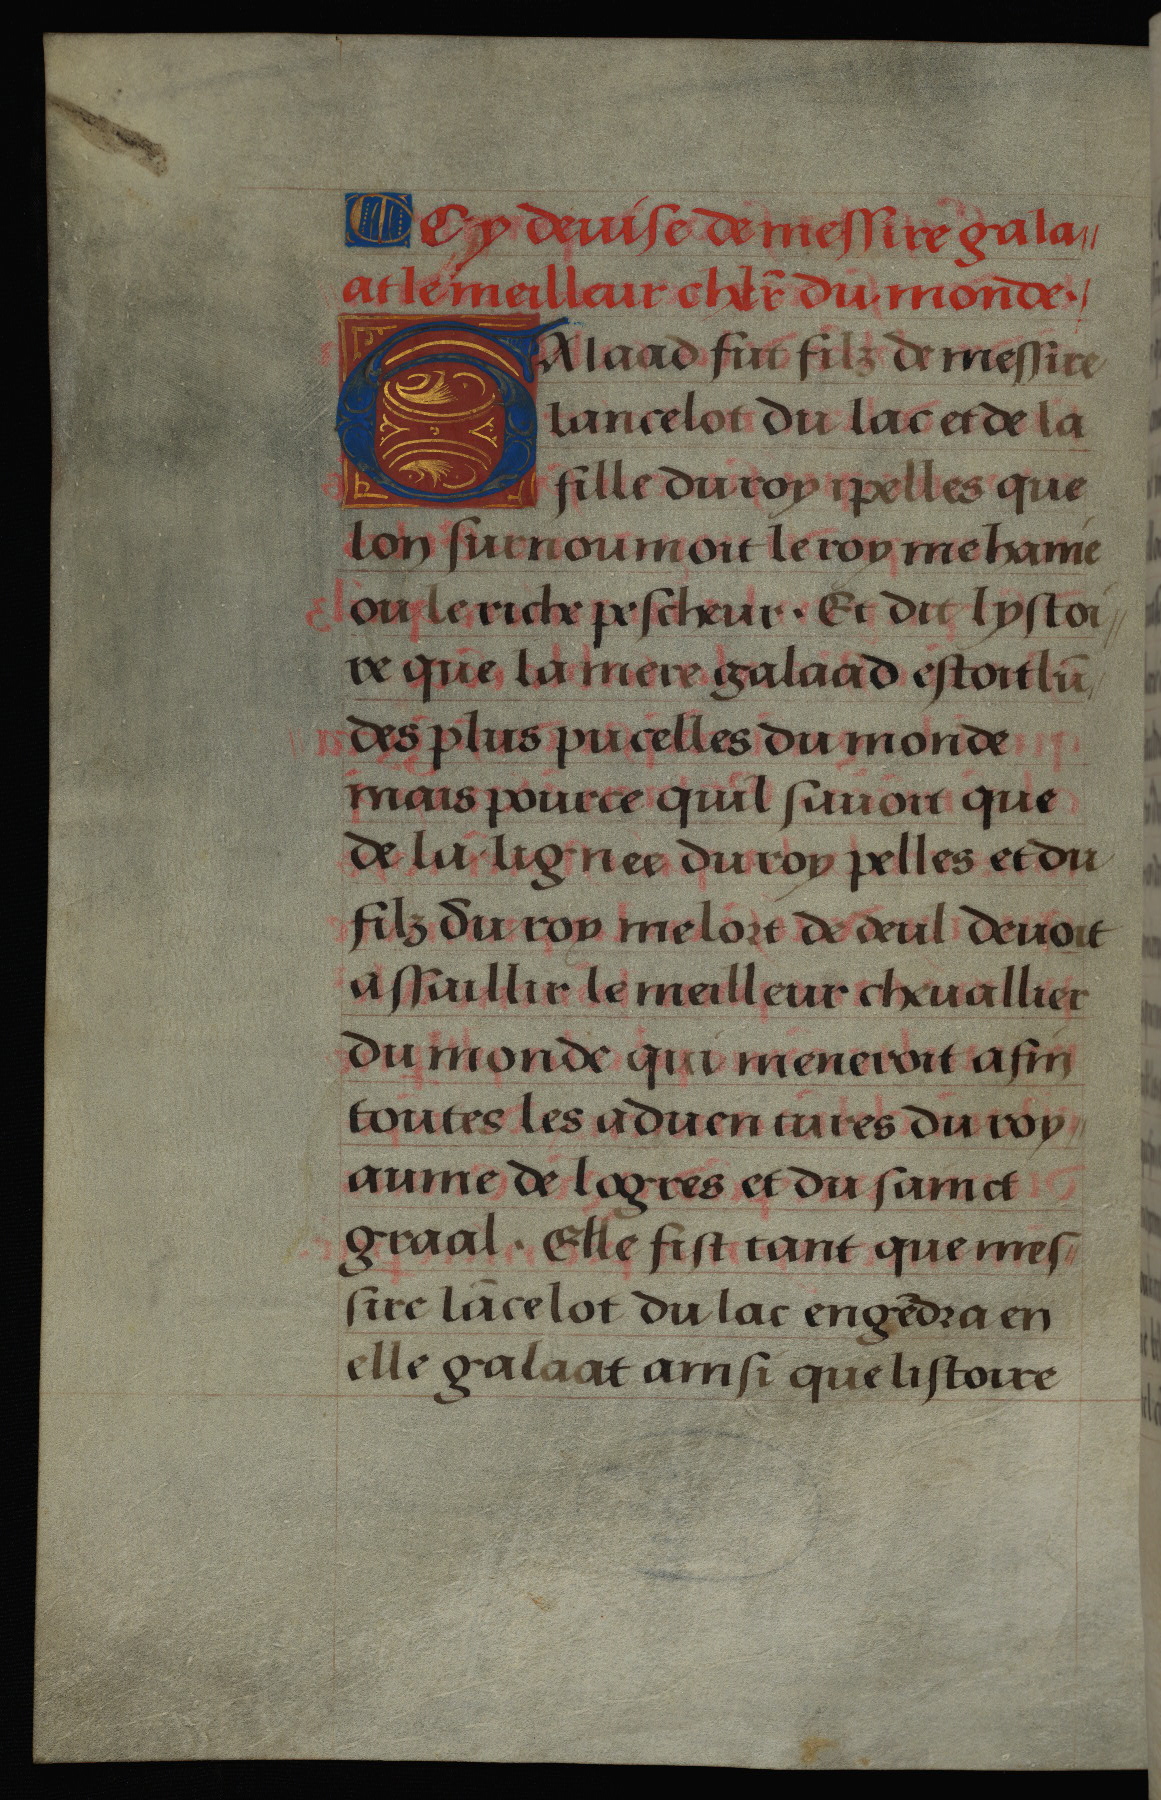 Cy deuise de messire gala//
at le meilleur chlr̄ du monde·/
GAlaad fut filz de messire
lancelot du lac et de la
fille du roy pelles que
lon surnoumoit le roy mehaine
ou le riche pescheur· Et dit lystoi//
re que la mere galaad estoit lū/
des plus pucelles du monde
mais pource quil sauoit que
de la lignee du roy pelles et du
filz du roy melort de deul deuoit
assaillir le meilleur cheuallier
du monde qui meneroit afin
toutes les aduentures du roy//
aume de logres et du sainct
graal· Elle fist tant que mes//
sire lācelot du lac engēdra en
elle galaat ainsi que listoire